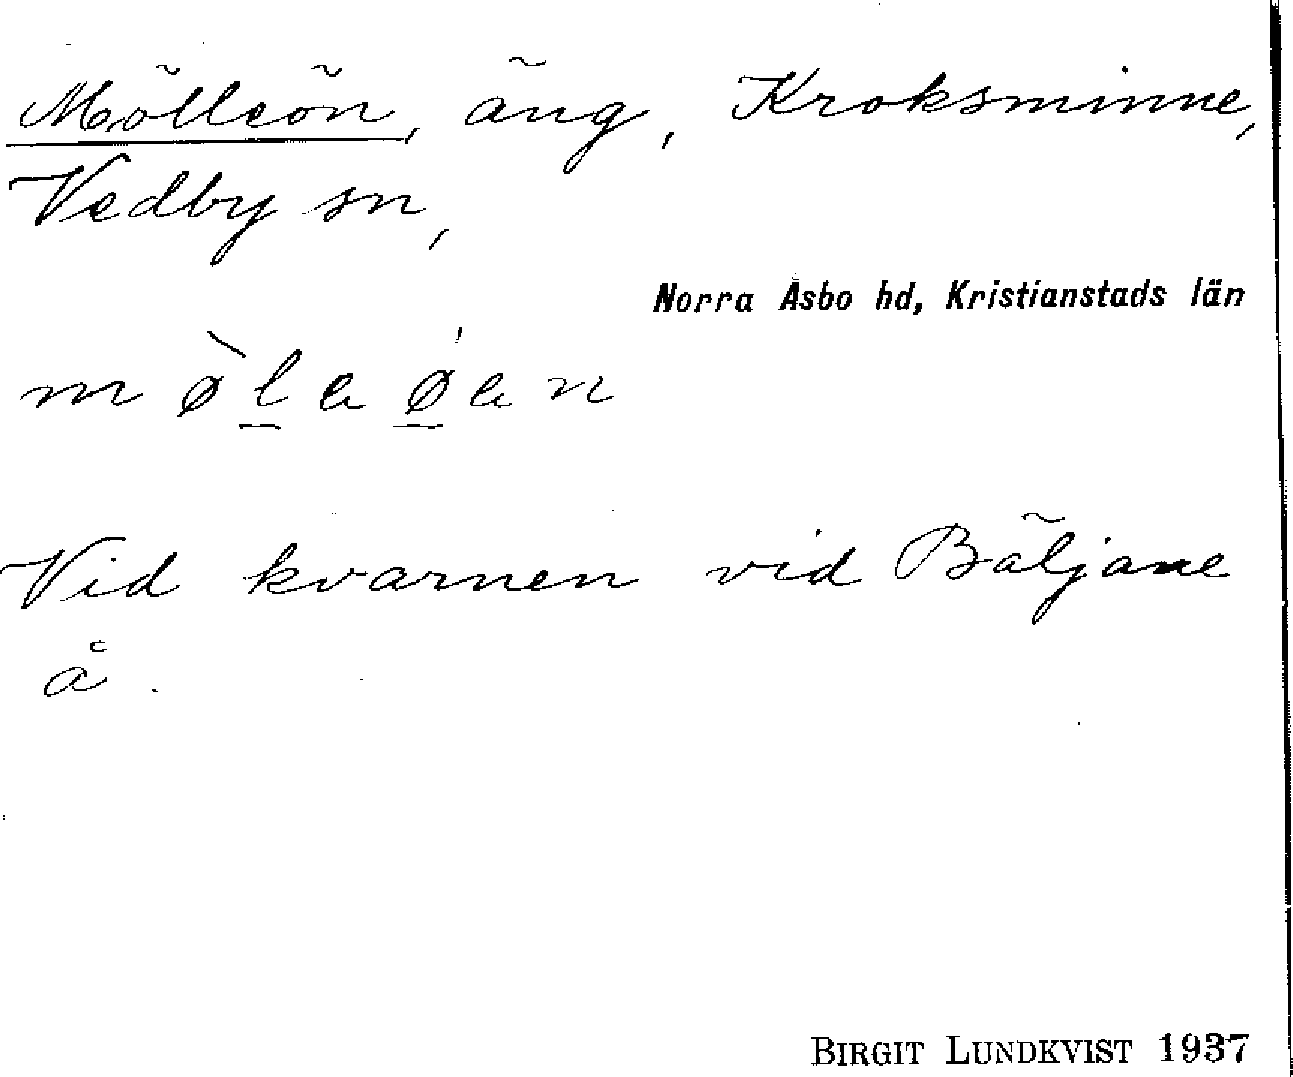 Mölleön, äng, Kroksminne,
Vedby sn,
Norra Åsbo hd, Kristianstads län
mø̀l̲aǿ̲an
Vid kvarnen vid Bäljane
å.
BIRGIT LUNDKVIST 1937